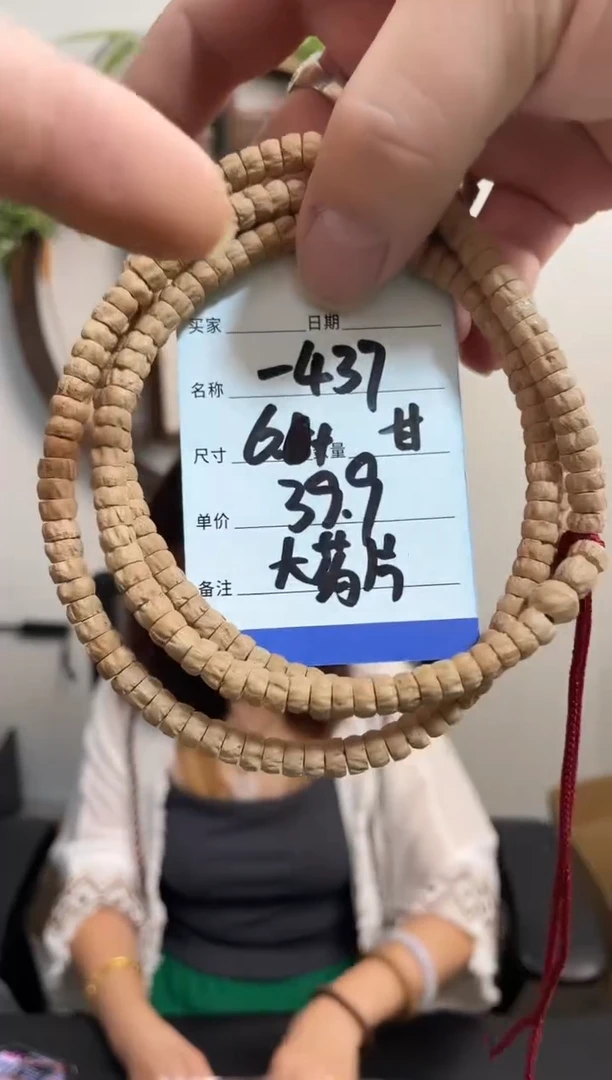 买家 日期
名称 -437
尺寸 数量 甘
单价 39.9
备注 大药片